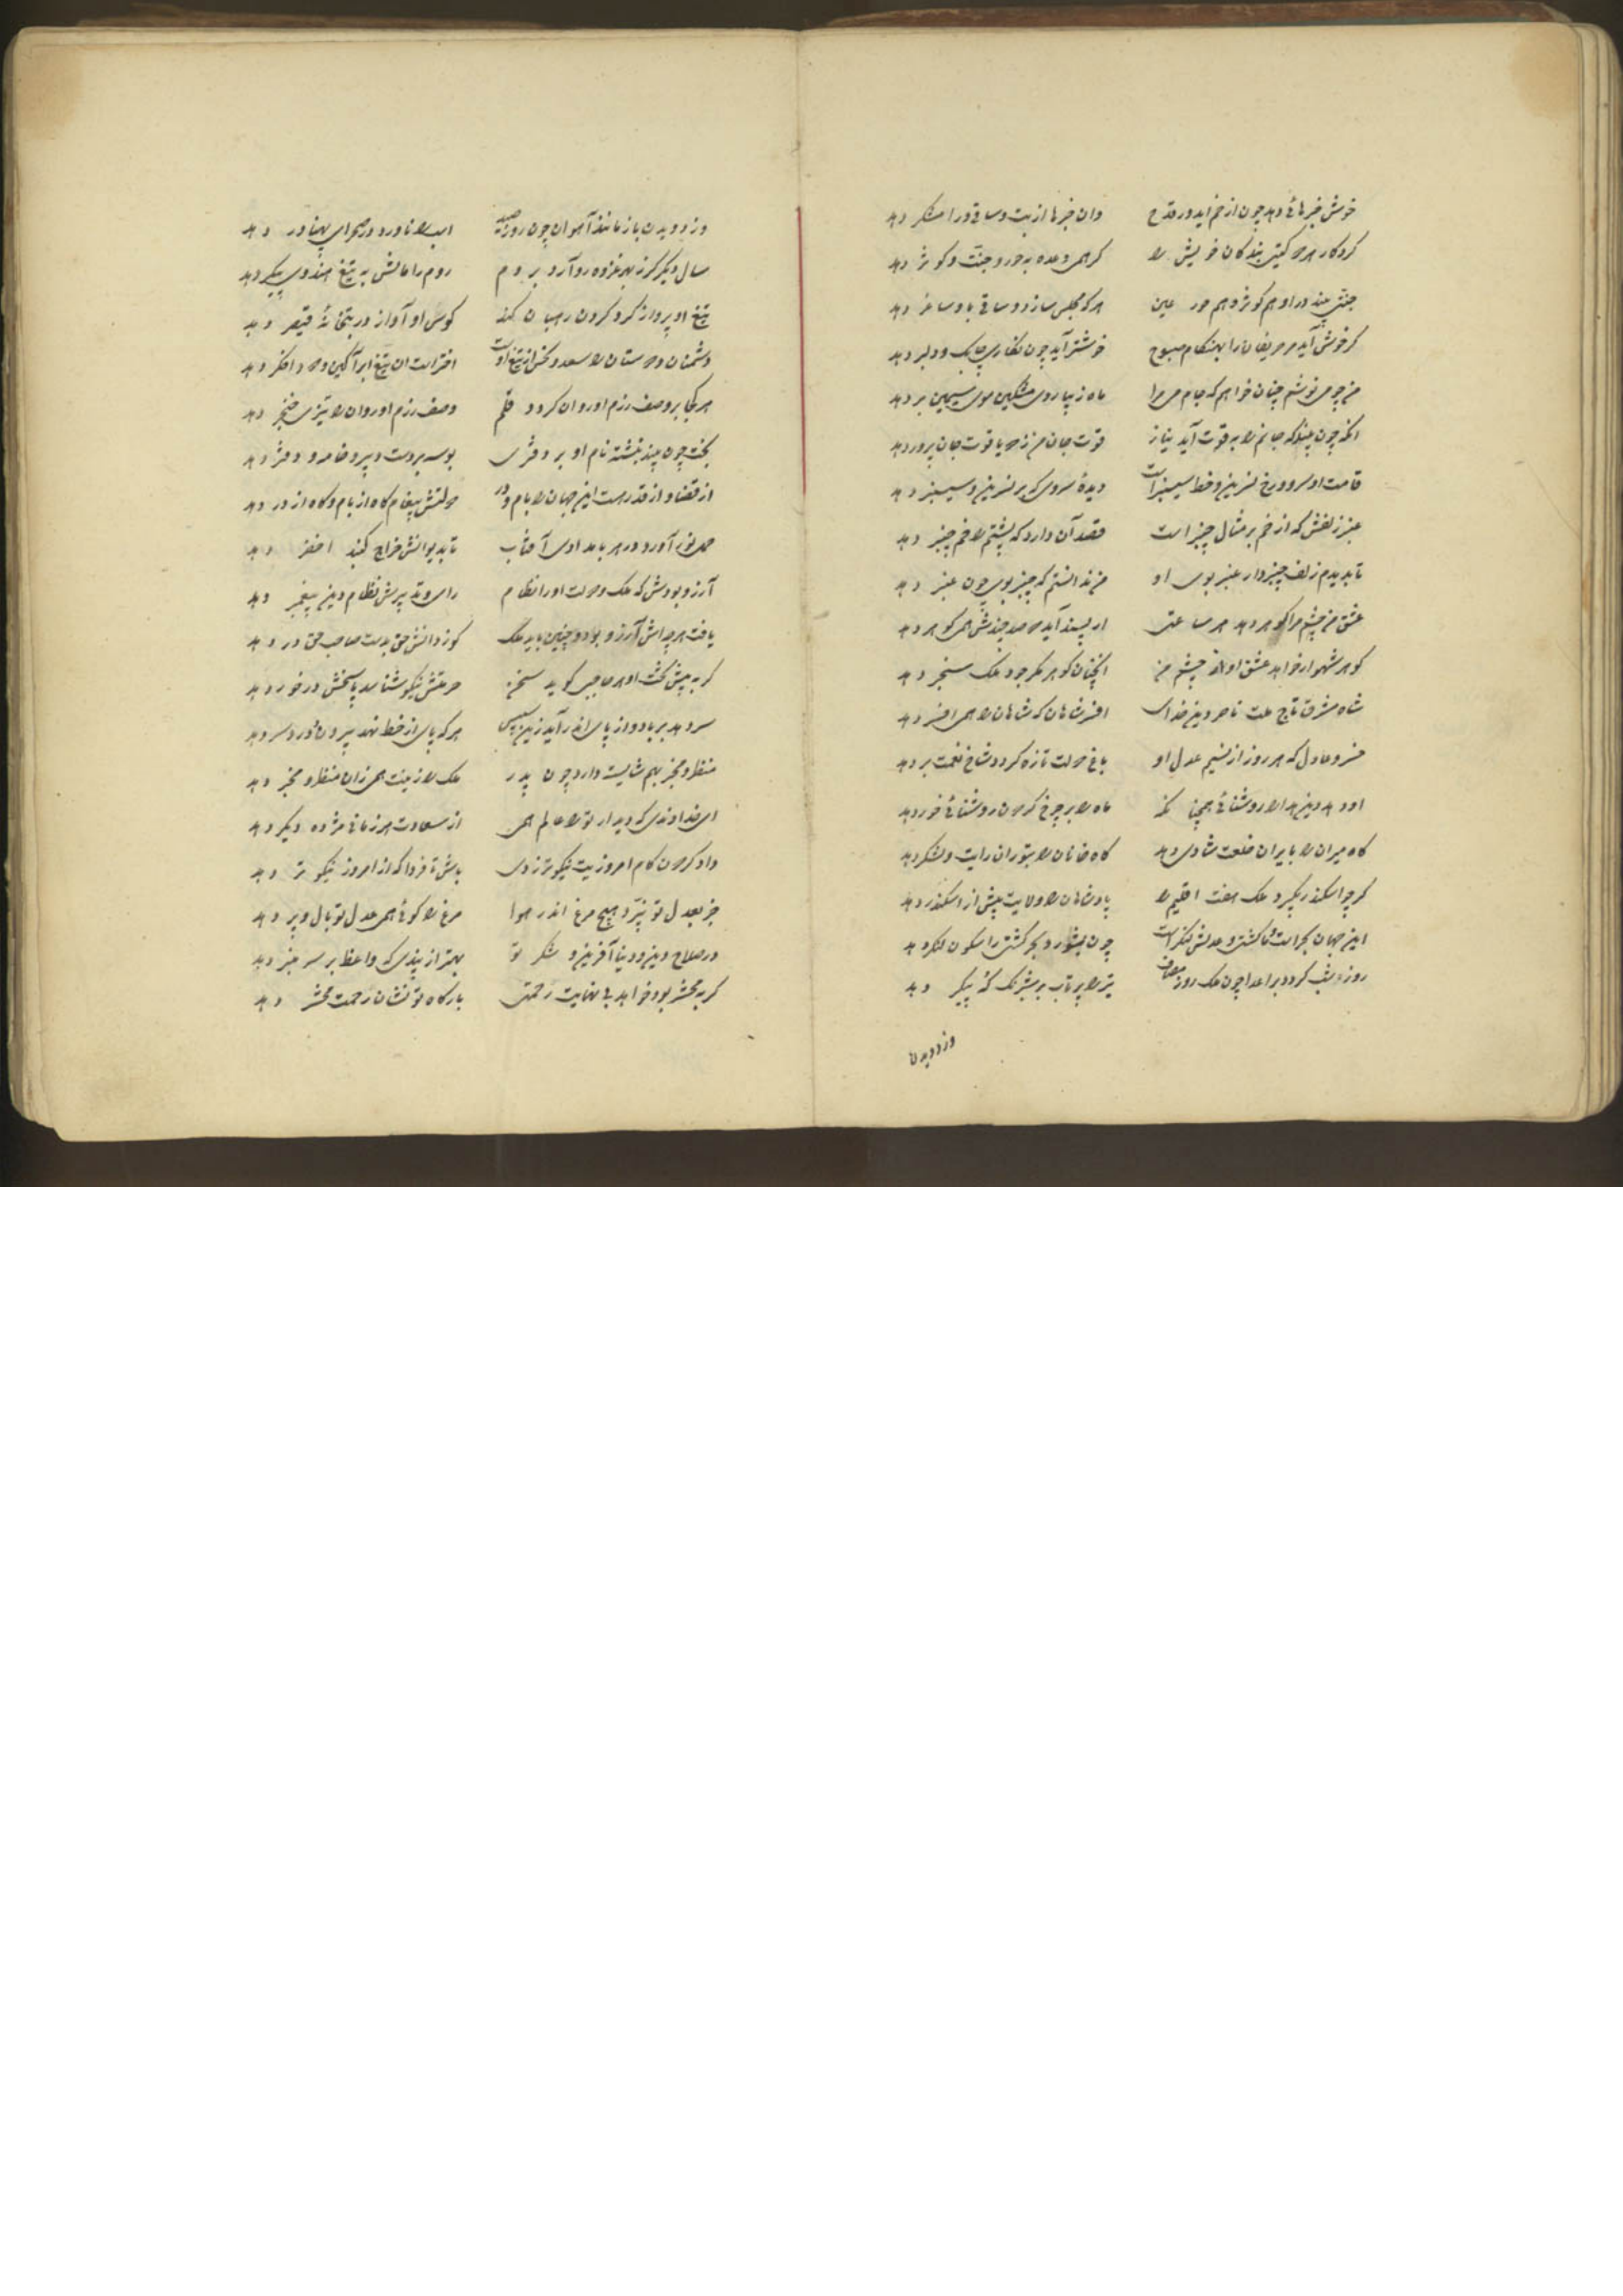 خوش خبرهائی دهد چون از خم اید در قدح    وان خبرها از بت و ساقی ورا مشکر دهد
کردکار هر دو کیتی بندکان خویش را    کر همی وعده به حور و جنت و کوثر دهد
جنتی بیند در او هم کوثر و هم حور عین    هر که مجلس سازد و ساقی باو ساغر دهد
کر خوش آید مر حریفان را بهنکام صبوح    خوشتر آید چون نکاری چابک و دلبر دهد
من چو می نوشم چنان خواهم که جام می مرا    ماه زیبا روی مشکین موی سیمین بر دهد
انکه چون بیند که جانم را به قوت آید نیاز    قوت جان من زدو یاقوت جان پرور دهد
قامت او سرو و رخ نسرین و خط سیسنبر است    دیدۀ سروی که بر نسرین و سیسنبر دهد
عنبر زلفش که از خم بر مثال چنبر است    قصد آن دارد که پشتم را خم چنبر دهد
تا بدیدم زلف چنبر وار عنبر بوی او    من ندانستم که چنبر بوی چون عنبر دهد
عشق من چشم مرا کوهر دهد هر ساعتی    ار پسند آید دو صد چندش همی کوهر دهد
کوهر شهوار خواهد عشق او از چشم من    انچنان کوهر مکر جود ملک سنجر دهد
شاه مشرق تاج ملت ناصر دین خدای    افسر شاهان که شاهان را همی افسر دهد
خسرو عادل که هر روز از نسیم عدل او    باغ دولت تازه کردد شاخ نعمت بر دهد
او دهد دین هدی را روشنائی همچنانکه    ماه را بر چرخ کردون روشنائی خور دهد
کاه میران را بایران خلعت شادی دهد    کاه خانان را بتوران رایت و لشکر دهد
کر چو اسکندر بکیرد ملک هفت اقلیم را    پادشاهان را ولایت بیش از اسکندر دهد
این جهان بحر است و ما کشتی و عدلش لنکر است    چون بشورد بحر کشتی را سکون لنکر دهد
روز شب کردد بر اعدا چون ملک روز مصاف    تیر را پرتاب بر شبرنک که پیکر دهد
وز دویدن
وز دویدن باز مانند آهوان چون روز صید    اسب را ناورد در صحرای پهناور دهد
سال دیکر کز بهر غزوه رو آرد بروم    روم را مالش به تیغ هندوی پیکر دهد
تیغ او پرواز کرد کردن رهبان کند    کوس او آواز در بتخانۀ قیصر دهد
دشمنان و دوستان را سعد و نحس از تیغ اوست    اختر است ان تیغ ابر آکین و دو اختر دهد
هر کجا بر وصف رزم او روان کردد قلم    وصف رزم او روان را تیزی خنجر دهد
بخت چون بیند نبشته نام او بر دفتری    بوسه بر دست دبیر و خامه و دفتر دهد
از قضا و از قدر هست این جهان را بام و در    دولتش پیغام کاه از بام و کاه از در دهد
آورد در هر بامدادی آفتاب    تا بدیوانش خراج کنبد اخضر دهد
آرزو بودش که ملک و دولت او را نظام    رای و تدبیرش نظام دین پیغمبر دهد
یافت هر چه اش آرزو بود و چنین باید ملک    کوز دانش حق بدست صاحب حق در دهد
کر به پیش تخت او هر صاحبی کوید سخن    حرمتش نیکو شناسد پاسخش در خور دهد
سر دهد بر باد و از پای اندر آید زین سپس    هر که پای از خط نهد بیرون و درد سر دهد
منظر و مخبر بهم شایسته دارد چون پدر    ملک را زینت همی زان منظر و مخبر دهد
ای خداوندی که دیدار تو را عالم همی    از سعادت هر زمانی مژده دیکر دهد
داد کردون کام امروزیت نیکوتر زدی    باش تا فردا که از امروز نیکوتر دهد
جز بعدل تو نپرّد هیچ مرغ اندر هوا    مرغ را کوئی همی عدل تو بال و پر دهد
در صلاح دین و دنیا آفرین و شکر تو    بهتر از پندی که واعظ بر سر منبر دهد
کر به محشر بود خواهد بی نهایت رحمتی    بارکاه تو نشان رحمت محشر دهد